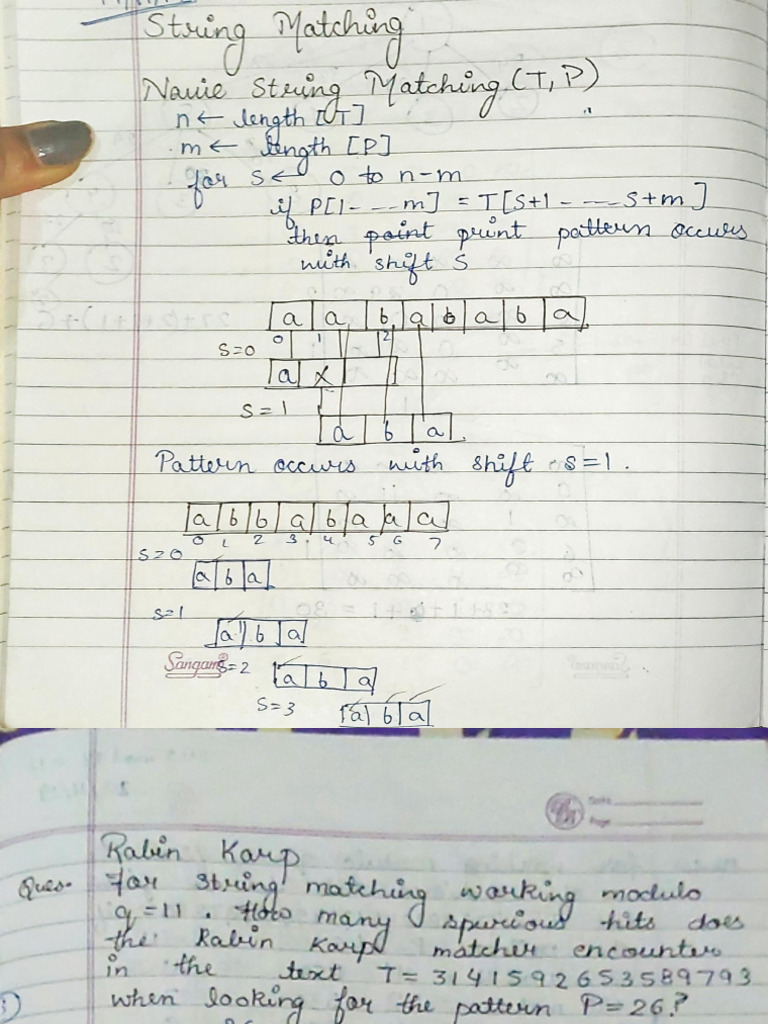 String Matching
Navie String Matching (T, P)
n ← length [T]
m ← length [P]
for s ← 0 to n-m
if P[1 - - - m] = T[s+1 - - - s+m]
then point print pattern occurs
with shift S
a a b a b a b a
0 1 2
s=0
a x
s = 1
a b a
Pattern occurs with shift s=1.
a b b a b a a a
0 1 2 3 4 5 6 7
s=0
a b a
s=1
a b a
Sangam s=2
a b a
s=3
a b a
Date
Page
Rabin Karp
Ques. For string matching working modulo
q=11. How many spurious hits does
the Rabin Karp matcher encounter
in the text T = 3141592653589793
when looking for the pattern P=26?